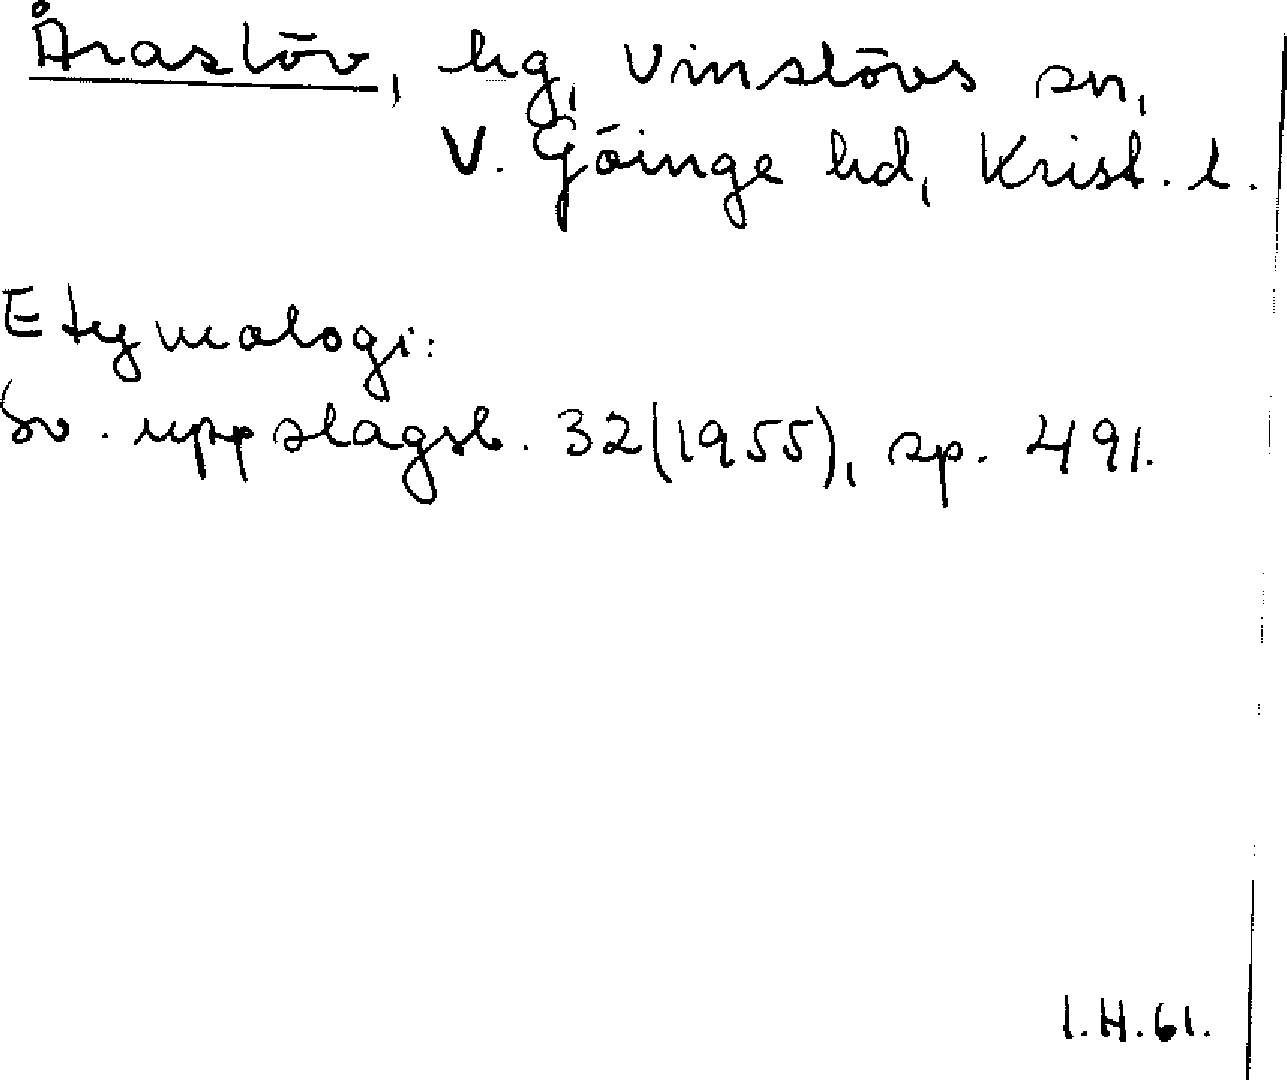 Åraslöv, hg, Vinslövs sn,
V. Göinge hd, Krist. l.
Etymologi:
Sv. uppslagsb. 32(1955), sp. 491.
I.H.61.